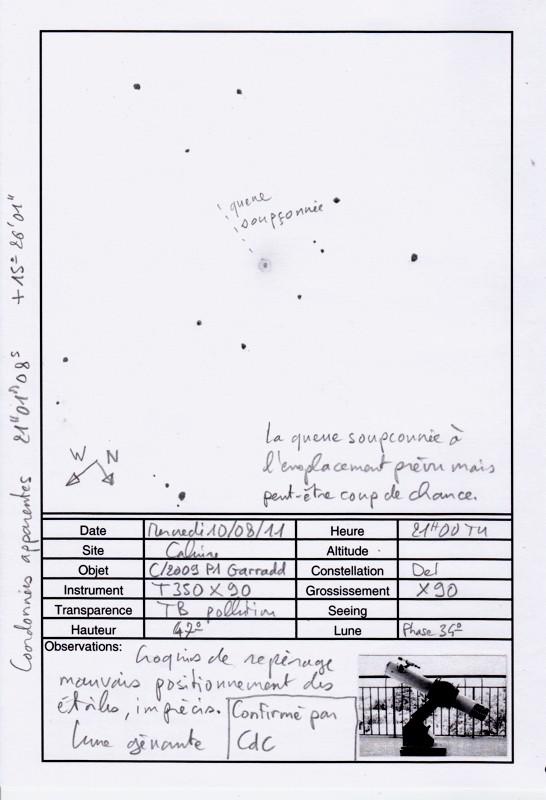 queue
soupçonnée
La queue soupconnée à
l'emplacement prévu mais
peut-être coup de chance.
W N
Coordonnées apparentes 21H01m08s +15°26'01"
Date Mercredi 10/08/11 Heure 21H00 TU
Site Altitude
Objet C/2009 P1 Garradd Constellation Del
Instrument T350 X90 Grossissement X90
Transparence TB pollution Seeing
Hauteur 47° Lune Phase 34°
Observations: Croquis de repérage
mauvais positionnement des
étoiles, imprécis.
Lune gênante
Confirmé par
CdC